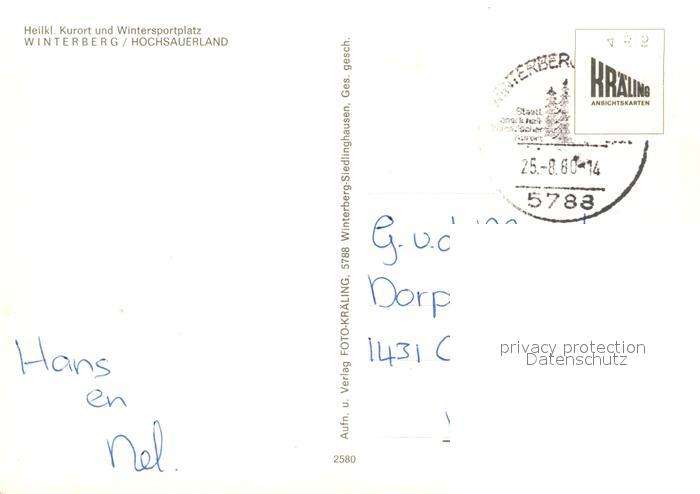 Heilkl. Kurort und Wintersportplatz
WINTERBERG / HOCHSAUERLAND
Aufn. u. Verlag FOTO-KRÄLING, 5788 Winterberg-Siedlinghausen. Ges. gesch.
2580
WINTERBERG
Staatl.
25.-8.80-14
5788
KRÄLING
ANSICHTSKARTEN
G.v.d
Dorp
1431 C
privacy protection
Datenschutz
Hans
en
Nel.